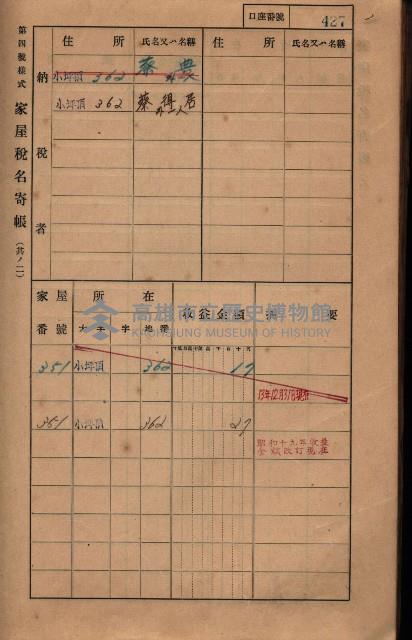 口座番號 427
第四號樣式 家屋稅名寄帳 (其ノ二)
納稅者
住所 氏名又ハ名稱 住所 氏名又ハ名稱
小坪頂 362 蔡 農 外一人
小坪頂 362 蔡得居 外一人
家屋番號 所在 收益金額 摘要
大字 字 地番
351 小坪頂 362 17
13年12月31日現在
351 小坪頂 362 27
昭和十九年收益
金額改訂現在
高雄市立歷史博物館
KAOHSIUNG MUSEUM OF HISTORY